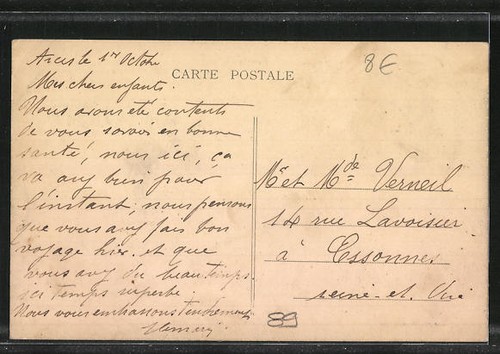 Arcis le 1er Octobre
Mes chers enfants.
Nous avons été contents
de vous savoir en bonne
santé, nous ici, ça
va aussi bien pour
l'instant, nous pensons
que vous avez fais bon
voyage hier. et que
vous avez du beau temps.
ici temps superbe.
Nous vous embrassons tendrement
8€
CARTE POSTALE
Mr et Mde Verneil
14 rue Lavoisier
à Essonnes
seine. et. Oise
89